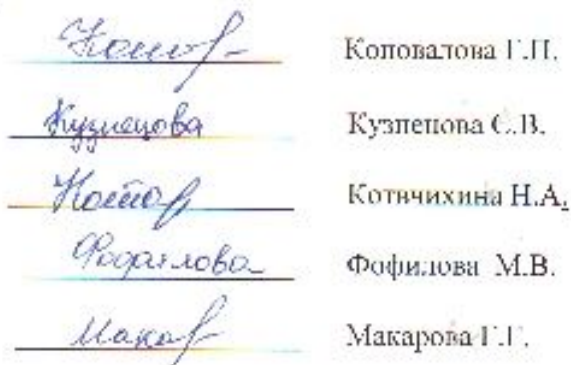 Конов Коновалова Г.П.
Кузнецова Кузнецова С.В.
Котов Котвчихина Н.А.
Фофилова М.В.
Макар Макарова Г.Г.